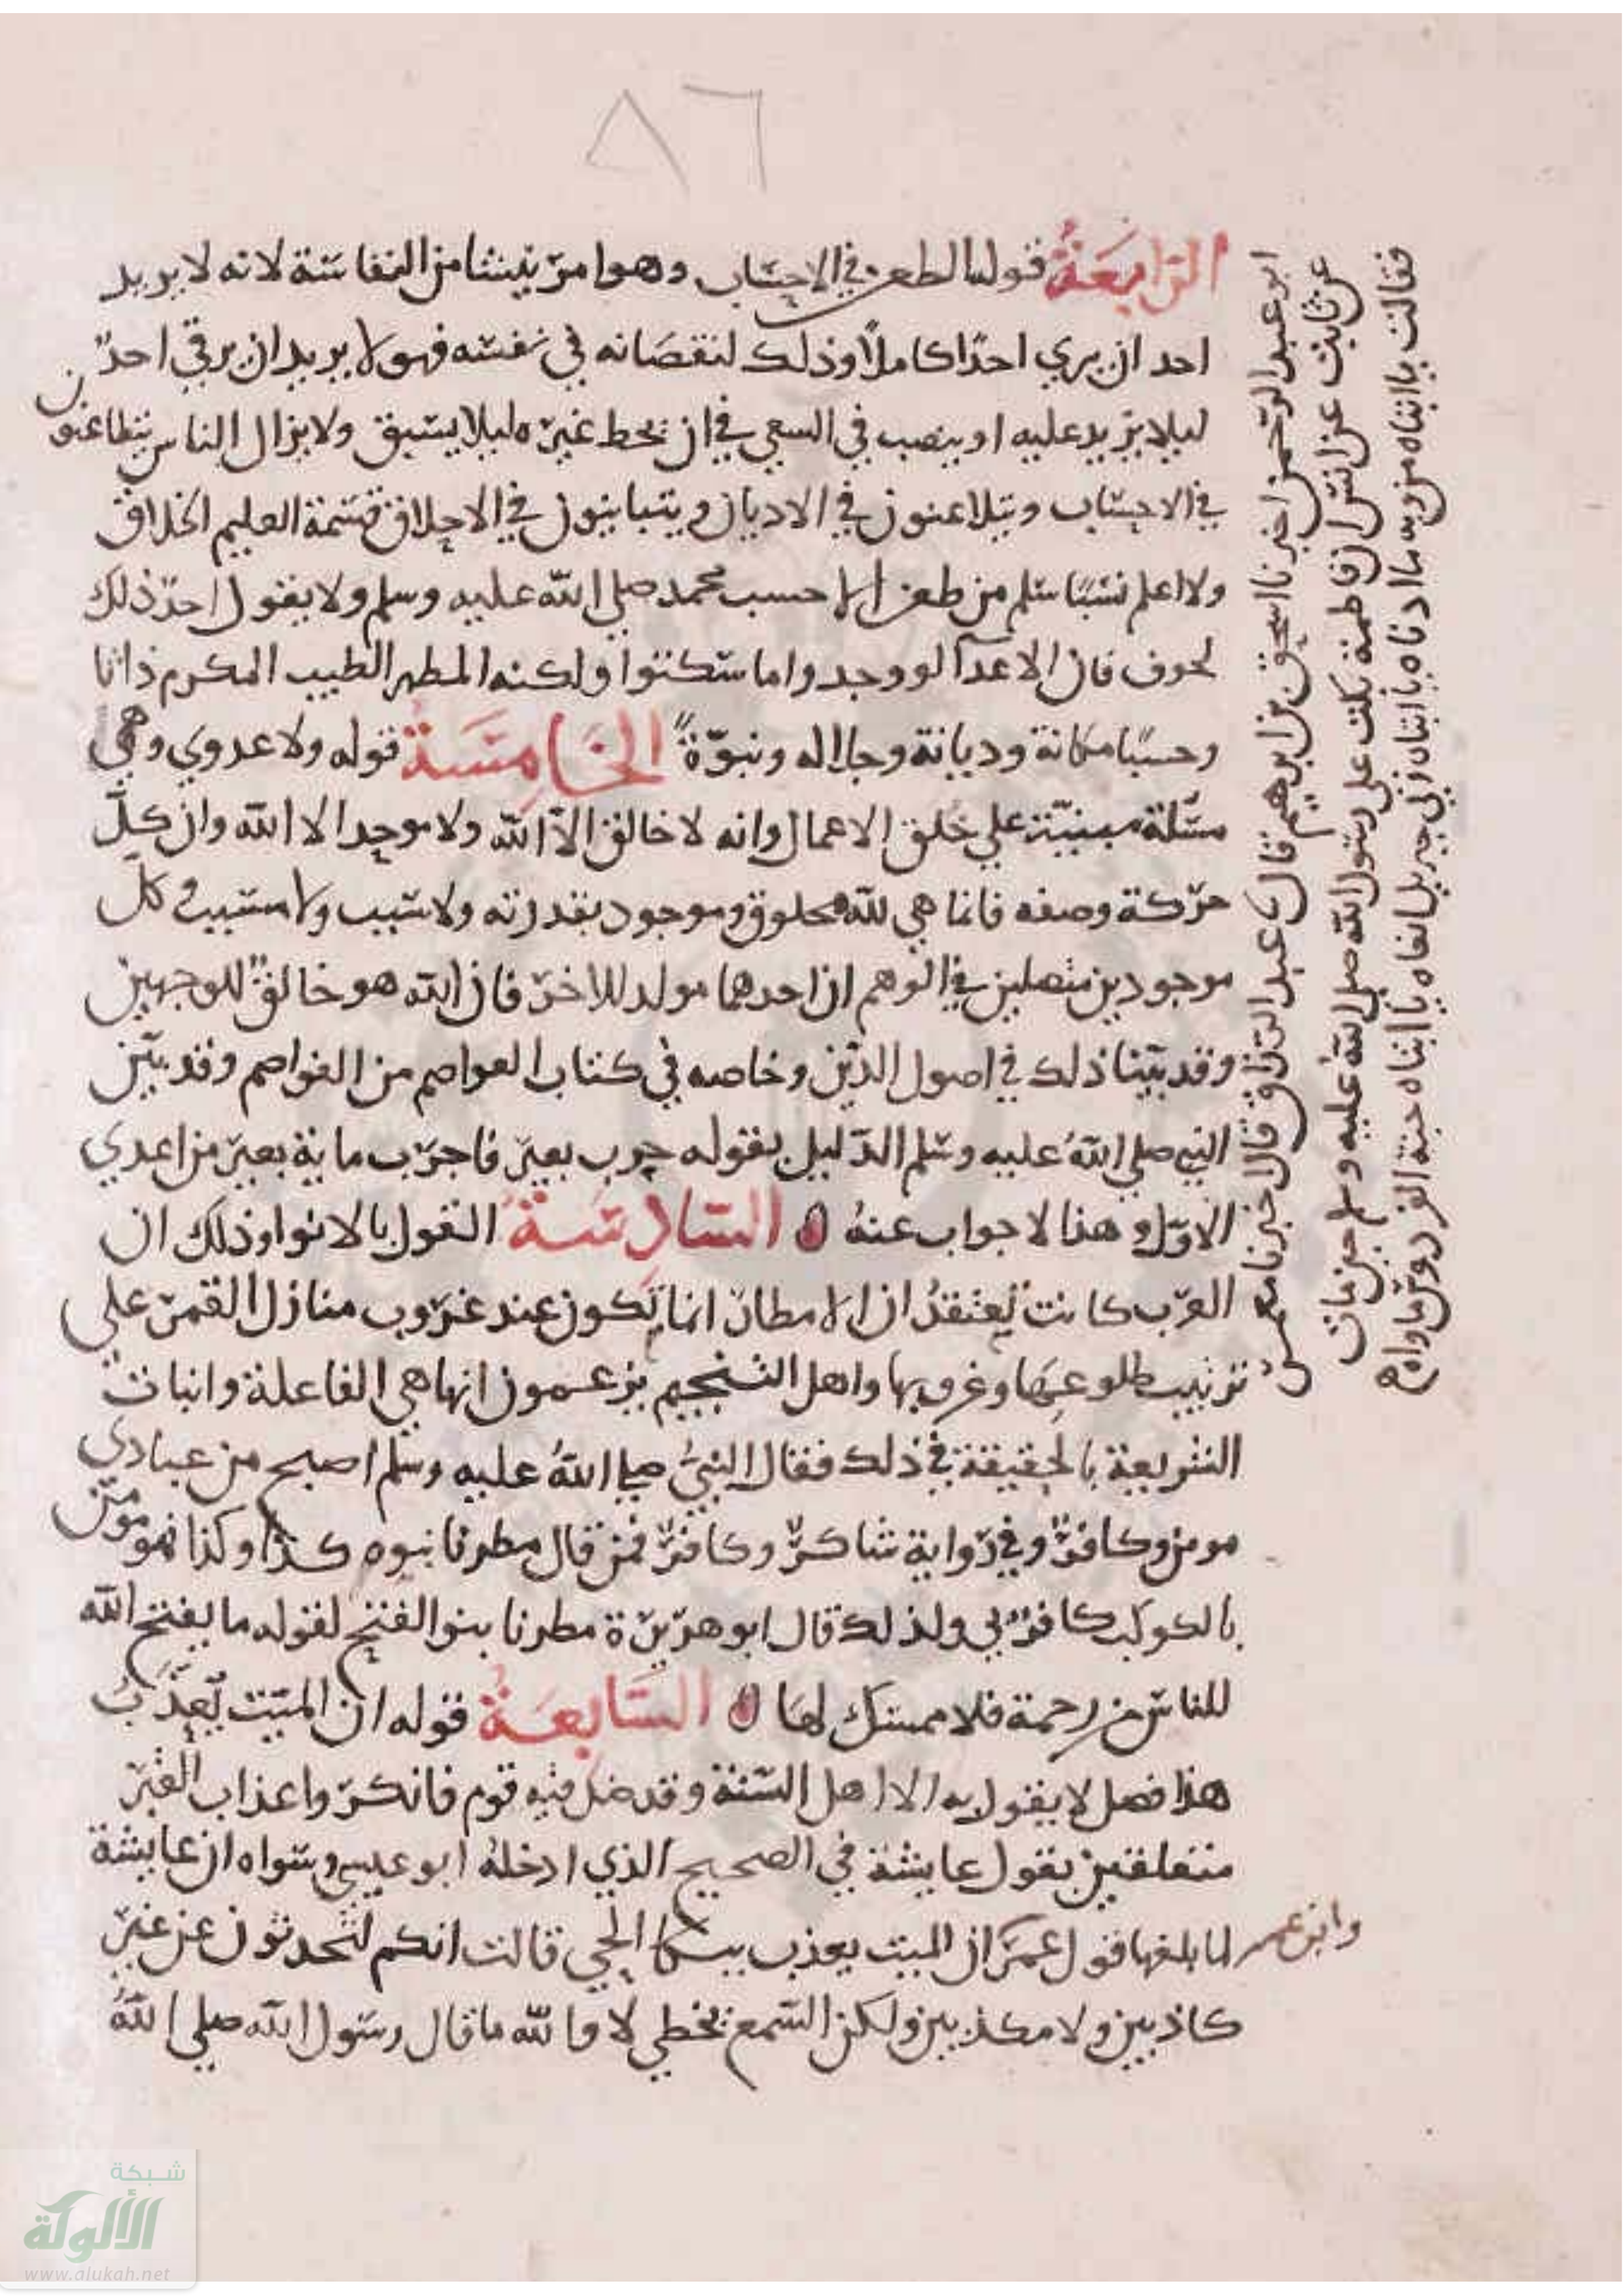 ٨٦
الرابعة قوله الطعن في الاحساب وهو امر ينشا من النفاسة لانه لا يريد
احد ان يري احدا كاملا وذلك لنقصانه في نفسه فهو لا يريد ان يرقي احد
ليلا يزيد عليه او ينصب في السعي في ان يحط غيره ليلا يسبق ولا يزال الناس يتطاعنون
في الاحساب ويتلاعنون في الاديان ويتباينون في الاخلاق قسمة العليم الخلاق
ولا اعلم نسبا سلم من طعن الا حسب محمد صلي الله عليه وسلم ولا يقول احد ذلك
لخوف فان الاعدآ لو وجدوا ما سكتوا ولكنه المطهر الطيب المكرم ذاتا
وحسبا مكانة وديانة وجلاله ونبوة الخامسة قوله ولا عدوي وهي
مسلة مبنية علي خلق الاعمال وانه لا خالق الا الله ولا موجد الا الله وان كل
حركة وصفه فانما هي لله مخلوق وموجود بقدرته ولا سبب ولا مسبب كل
موجودين متصلين في الوهم ان احدهما مولد للاخر فان الله هو خالق للوجهين
وقد بينا ذلك في اصول الدين وخاصه في كتاب العواصم من القواصم وقد بين
النبي صلي الله عليه وسلم الدليل بقوله جرب بعير فاجرب ماية بعير من اعدي
الاول وهذا لا جواب عنه السادسة القول بالانوا وذلك ان
العرب كانت تعتقد ان الامطار انما تكون عند غروب منازل القمر علي
ترتيب طلوعها وغروبها واهل التنجيم يزعمون انها هي الفاعلة وانبات
الشريعة بالحقيقة في ذلك فقال النبي صلي الله عليه وسلم اصبح من عبادي
مومن وكافر وفي رواية شاكر وكافر فمن قال مطرنا بنوء كذا وكذا فهو مومن
بالكوكب كافر بي ولذلك قال ابو هريرة مطرنا بنو الفتح لقوله ما يفتح الله
للناس من رحمة فلا ممسك لها السابعة قوله ان الميت يعذب
هذا فصل لا يقول به الا اهل السنة وقد ضل فيه قوم فانكروا عذاب القبر
متعلقين بقول عايشة في الصحيح الذي ادخله ابو عيسي وسواه ان عايشة
لما بلغها قول عمر ان الميت يعذب ببكا الحي قالت انكم لتحدثون عن غير
كاذبين ولا مكذبين ولكن السمع يخطي لا والله ما قال رسول الله صلي الله
وابن عمر
ابو عبد الرحمن اخبرنا اسحق بن ابرهيم قال عبد الرزاق قال اخبرنا معمر
عن ثابت عن انس ان فاطمة بكت علي رسول الله صلي الله عليه وسلم حين مات
فقالت يا ابتاه من ربه ما ادناه يا ابتاه الي جبريل انعاه يا ابتاه جنة الفردوس ماواه
شبكة
الألوكة
www.alukah.net